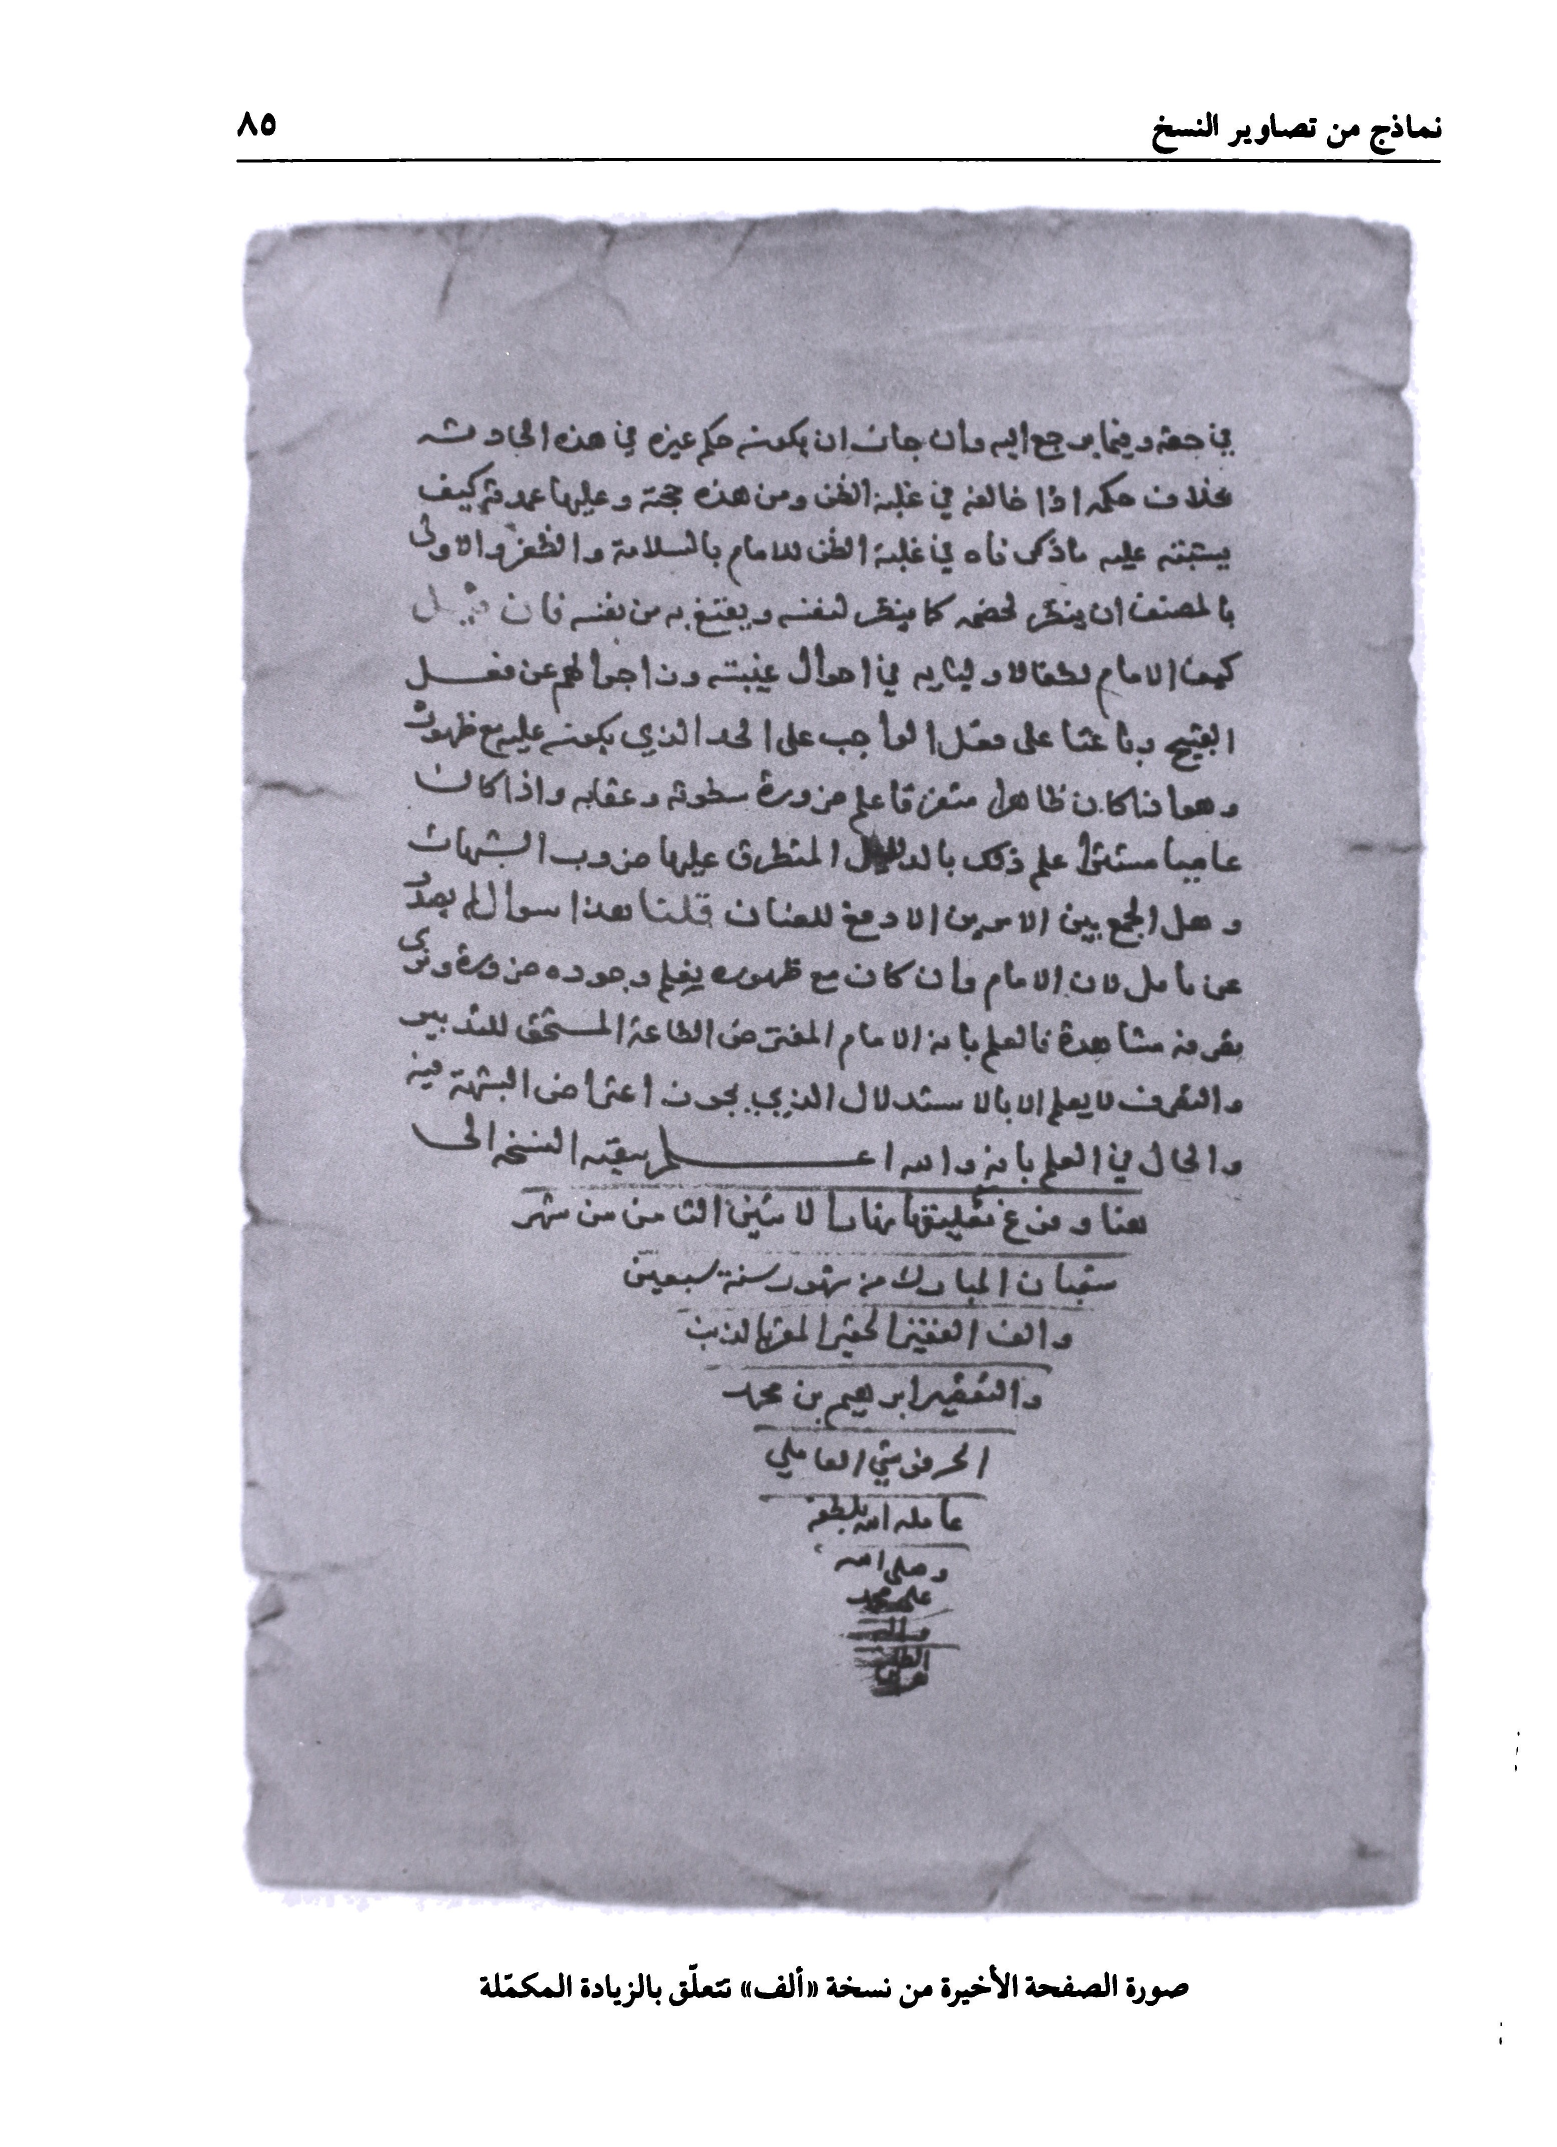 نماذج من تصاوير النسخ ٨٥
في حقه وفيما يرجع اليه وان جاز ان يكون حكم غيره في هذه الحادثه
بخلاف حكمه اذا خالفه في غلبة الظن ومن هذه حجته وعليها عمدته كيف
يشتبه عليه ما ذكرناه في غلبة الظن للامام بالسلامة والظفر والاولى
بالمصنف ان ينظر لخصمه كما ينظر لنفسه ويقنع به من نفسه فان قيل
كيف الامام لطفا لاوليائه في احوال غيبته وزاجرا لهم عن فعل
القبيح وباعثا على فعل الواجب على الحد الذي يكون عليه مع ظهوره
وهو اذا كان ظاهرا متصرفا علم ضرورة سطوته وعقابه واذا كان
غايبا مستترا علم ذلك بالدليل المتطرق عليها ضروب الشبهات
وهل الجمع بين الامرين الا دفع للعنان قلنا هذا سوال لم يصدر
عن تامل لان الامام وان كان مع ظهوره يعلم وجوده ضرورة ونرى
تصرفه مشاهدة فالعلم بانه الامام المفترض الطاعة المستحق للتدبير
والتصرف لا يعلم الا بالاستدلال الذي يجوز اعتراض الشبهة فيه
والحال في العلم بانه والله اعلم بقيه النسخه الى
هنا وفرغ تعليقها نهار الاثنين الثامن من شهر
شعبان المبارك من شهور سنة سبعين
والف الفقير الحقير المقر بالذنب
والتقصير ابرهيم بن محمد
الحرفوشي العاملي
عامله الله بلطفه
وصلى الله
على محمد
واله
صورة الصفحة الأخيرة من نسخة «ألف» تتعلّق بالزيادة المكمّلة